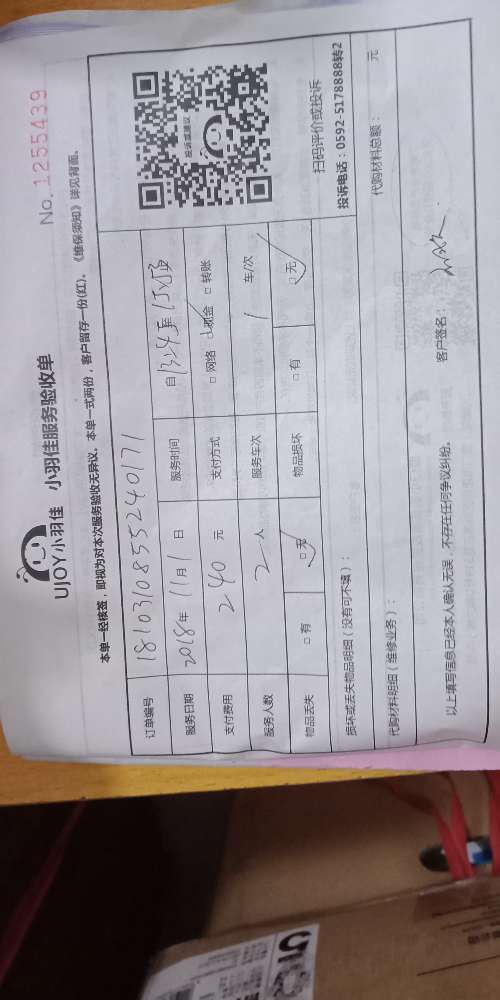 No.1255439
UJOY小羽佳 小羽佳服务验收单
本单一经核签，即视为对本次服务验收无异议。本单一式两份，客户留存一份(红)。《维保须知》详见背面。
订单编号 181031085524017 1
服务日期 2018年 11月 1 日 服务时间 自13:24至
支付费用 240 元 支付方式 □ 网络 □ 现金 □ 转账
服务人数 2 人 服务车次 1 车/次
物品丢失 □ 有 □ 无 物品损坏 □ 有 □ 无
投诉或建议
扫码评价或投诉
投诉电话：0592-5178888转2
损坏或丢失物品明细（没有可不填）：
代购材料明细（维修业务）： 代购材料总额： 元
以上填写信息已经本人确认无误，不存在任何争议纠纷。 客户签名：